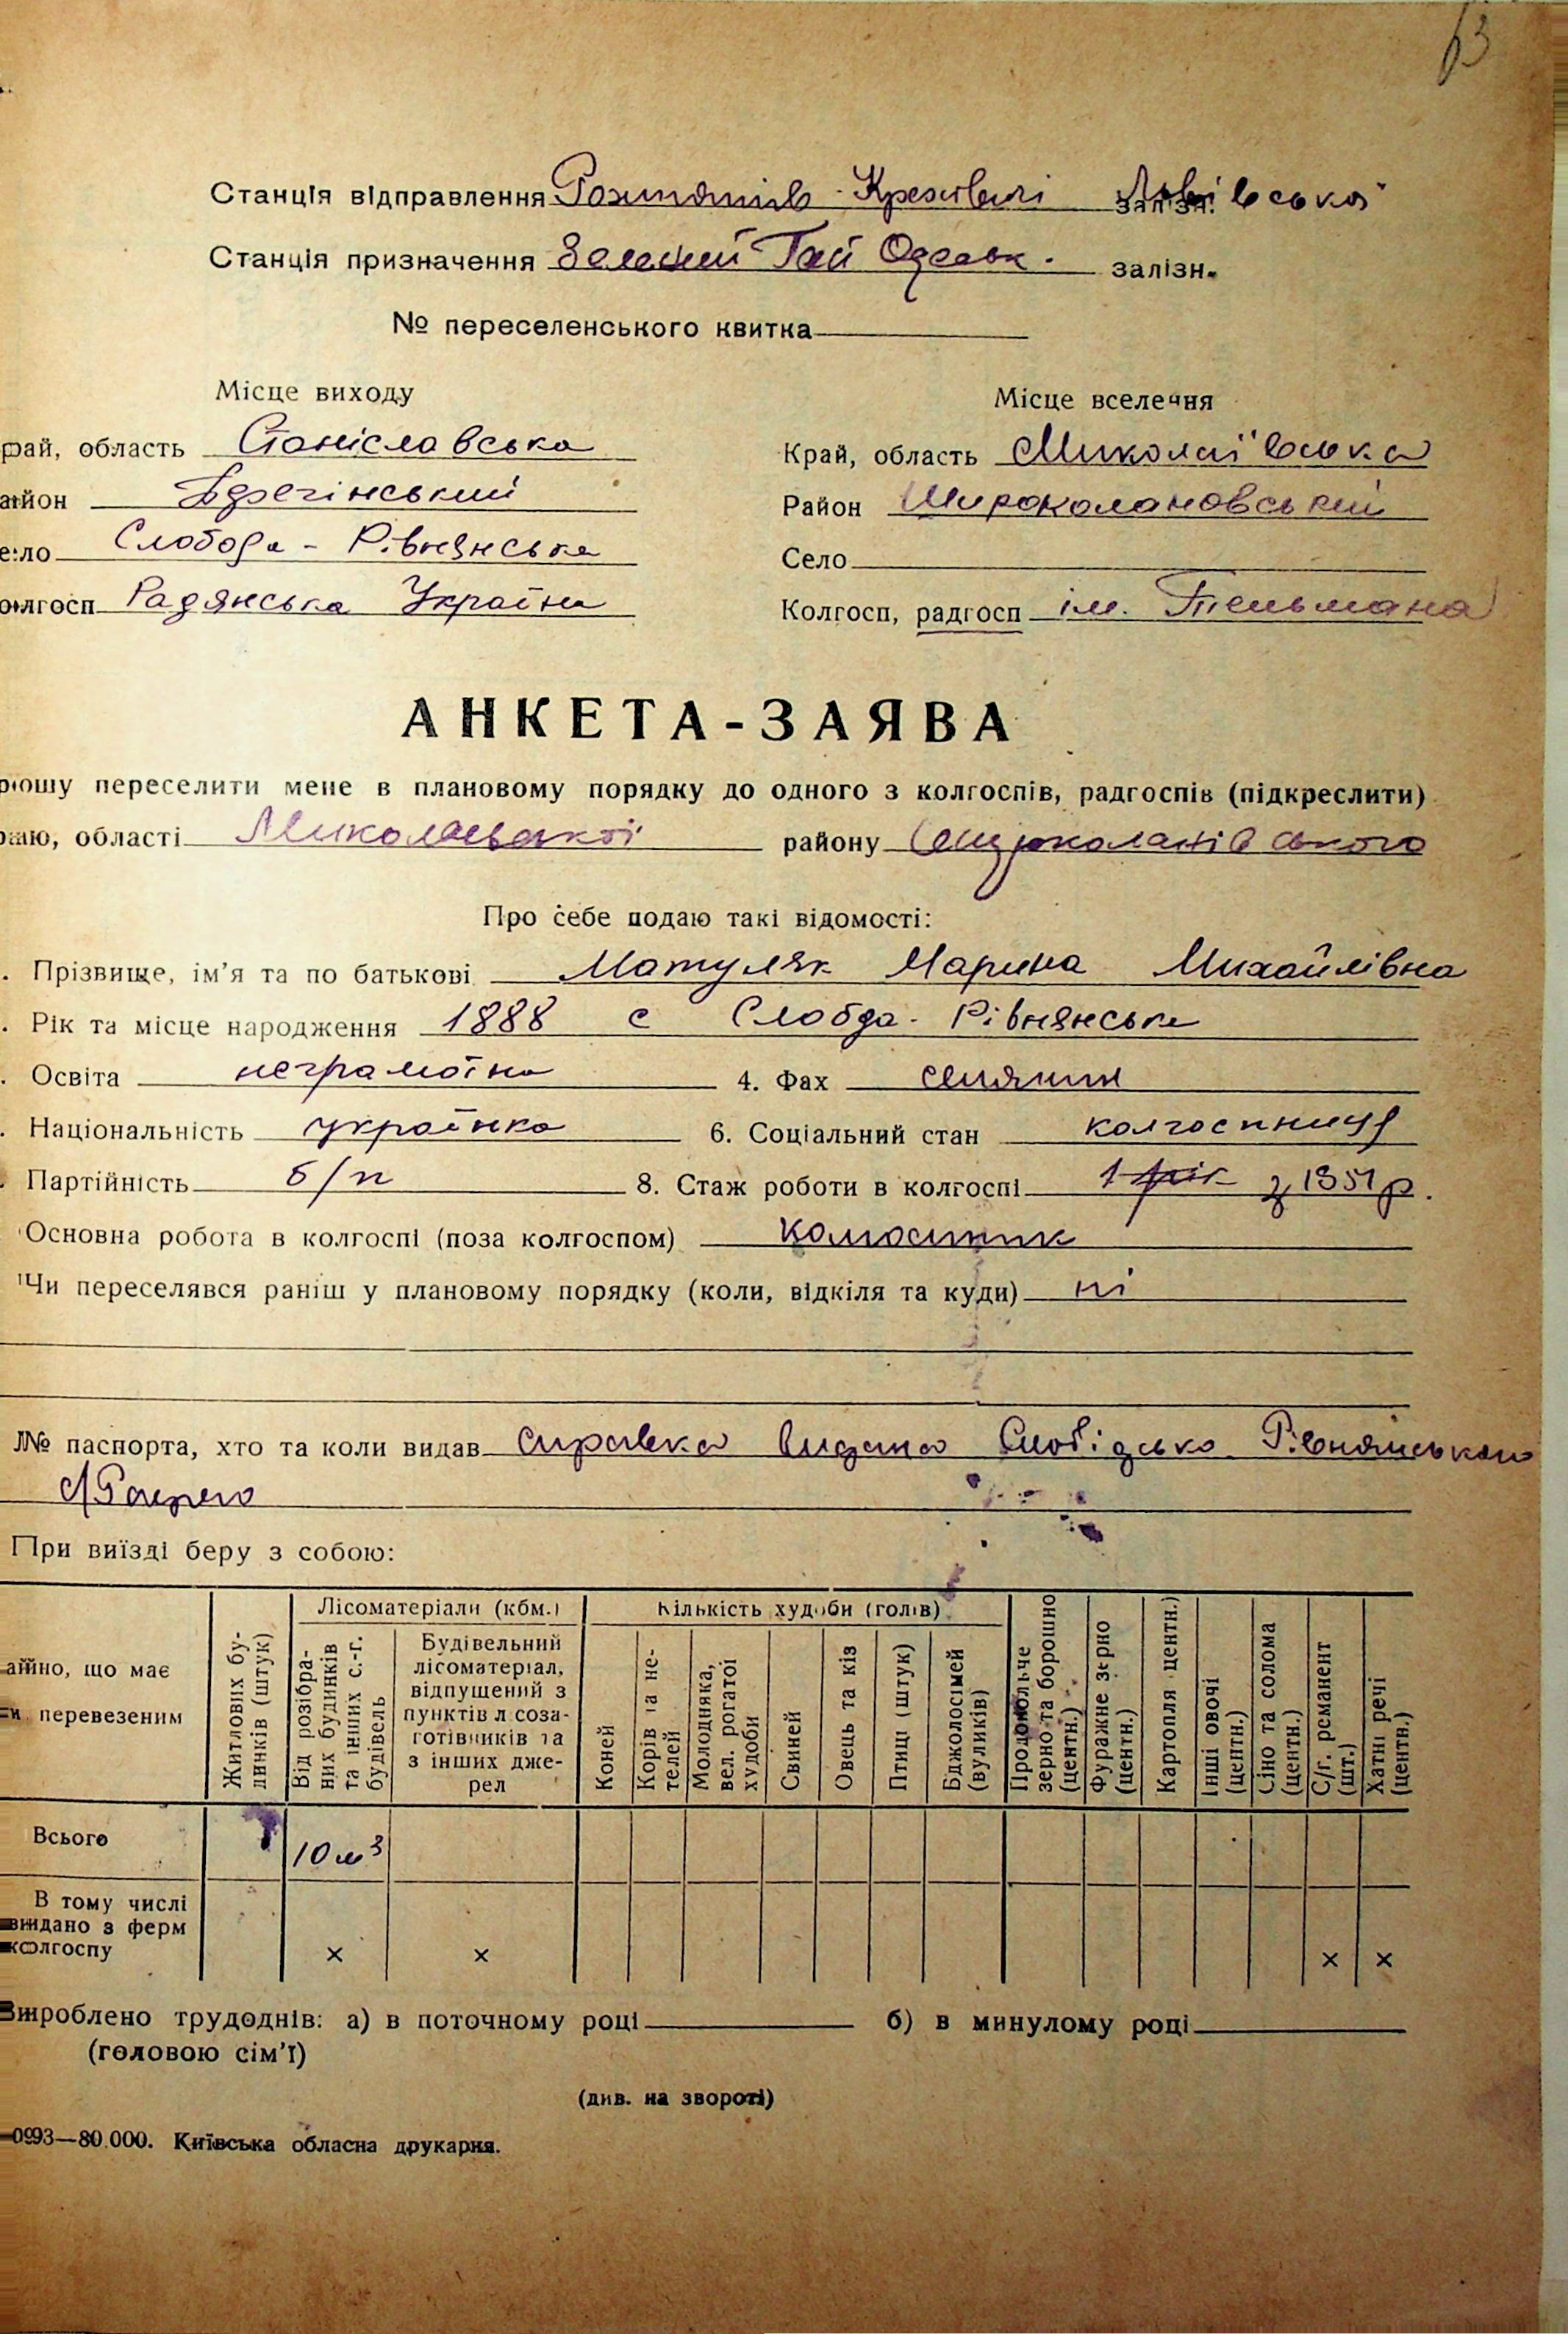 63
Станція відправлення Рожнятів-Креховичі залізн. Львівської
Станція призначення Зелений Гай Одеськ. залізн.
№ переселенського квитка
Місце виходу
Місце вселення
рай, область Станіславська
Край, область Миколаївська
айон
Район Широколановський
ело Слобода-Рівнянська
Село
олгосп Радянська Україна
Колгосп, радгосп ім. Тельмана
АНКЕТА-ЗАЯВА
рошу переселити мене в плановому порядку до одного з колгоспів, радгоспів (підкреслити)
раю, області Миколаївської району Широколанівського
Про себе подаю такі відомості:
. Прізвище, ім'я та по батькові Матуляк Марина Михайлівна
. Рік та місце народження 1888 с Слобда-Рівнянська
. Освіта неграмотна 4. Фах
. Національність українка 6. Соціальний стан колгоспниця
. Партійність б/п 8. Стаж роботи в колгоспі 1 рік з 1951 р.
Основна робота в колгоспі (поза колгоспом) колгоспник
Чи переселявся раніш у плановому порядку (коли, відкіля та куди) ні
№ паспорта, хто та коли видав справка видана Слобідсько Рівнянською
с/Радою
При виїзді беру з собою:
айно, що має
и перевезеним
Житлових будинків (штук)
Лісоматеріали (кбм.)
Від розібраних будинків та інших с.-г. будівель
Будівельний лісоматеріал, відпущений з пунктів лісозаготівників та з інших джерел
Кількість худоби (голів)
Коней
Корів та нетелей
Молодняка, вел. рогатої худоби
Свиней
Овець та кіз
Птиці (штук)
Бджолосімей (вуликів)
Продовольче зерно та борошно (центн.)
Фуражне зерно (центн.)
Картопля центн.)
Інші овочі (центн.)
Сіно та солома (центн.)
С/г. реманент (шт.)
Хатні речі (центн.)
Всього 10 м³
В тому числі
видано з ферм
колгоспу × × × ×
Вироблено трудоднів: а) в поточному році б) в минулому році
(головою сім'ї)
(див. на звороті)
0993—80.000. Київська обласна друкарня.